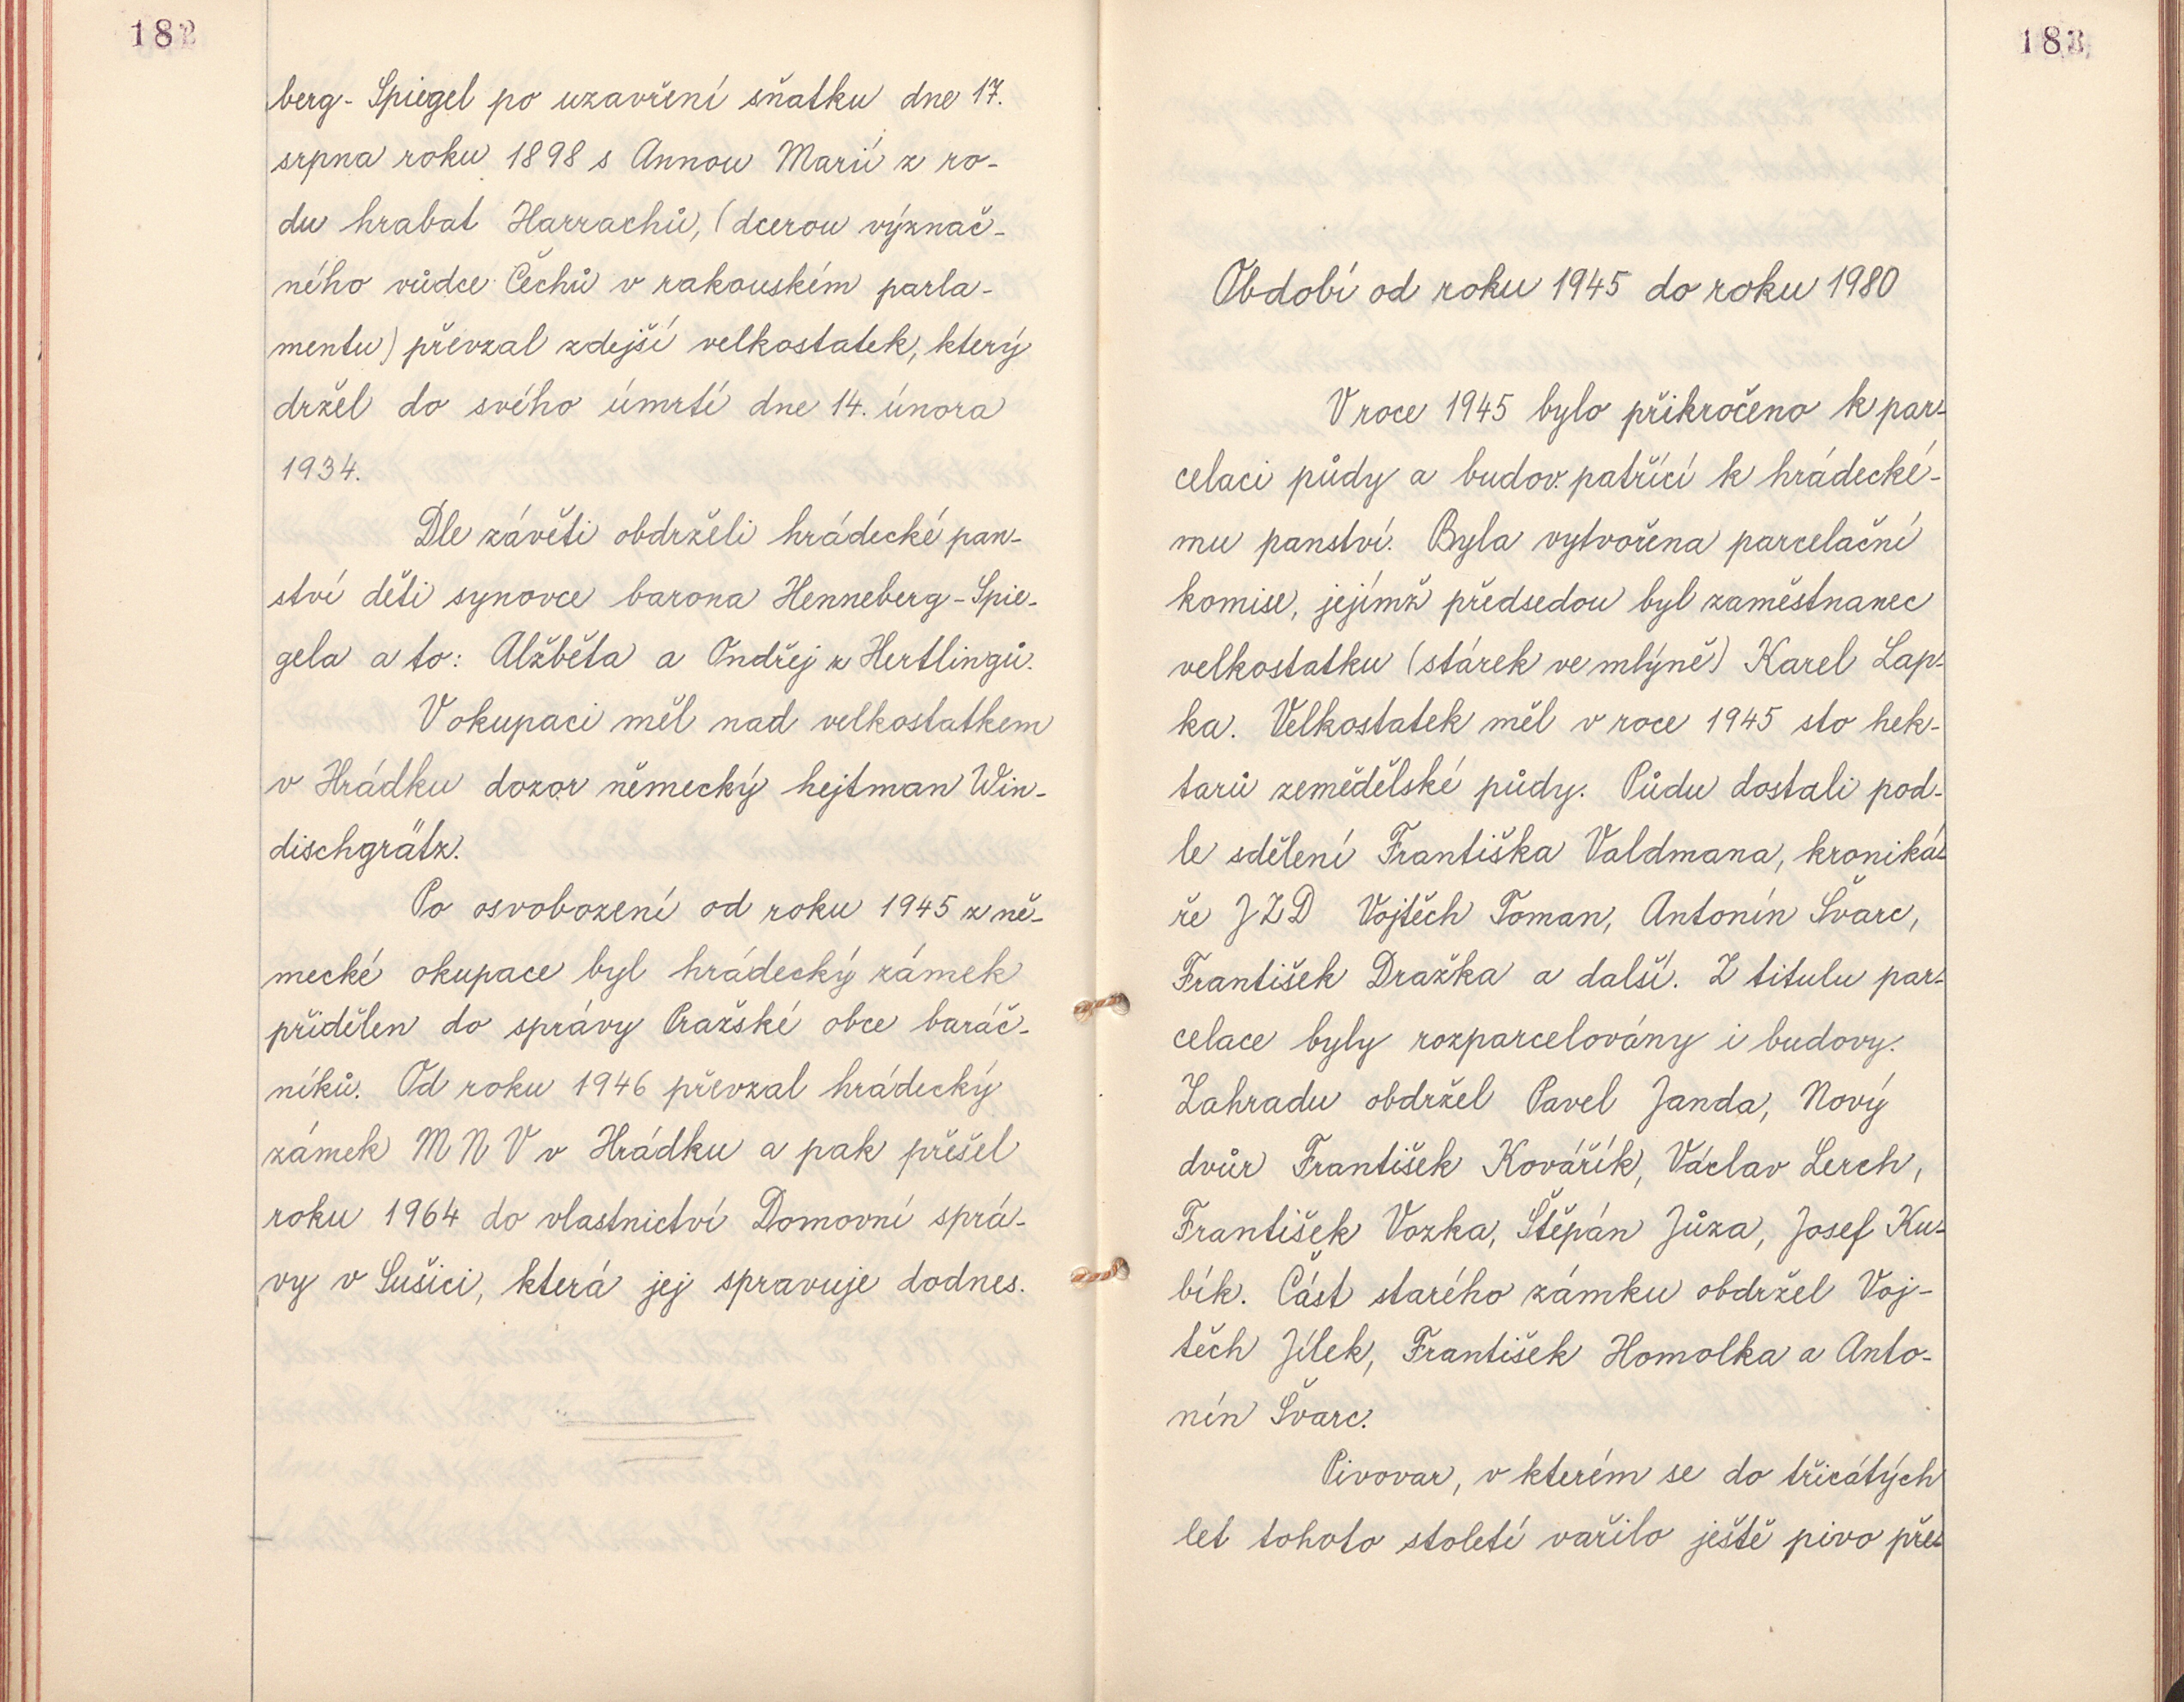 182
berg-Spiegel po uzavření sňatku dne 17.
srpna roku 1898 s Annou Marií z ro-
du hrabat Harrachů, (dcerou význač-
ného vůdce Čechů v rakouském parla-
mentu) převzal zdejší velkostatek, který
držel do svého úmrtí dne 14. února
1934.
Dle závěti obdrželi hrádecké pan-
ství děti synovce barona Henneberg-Spie-
gela a to: Alžběta a Ondřej z Hertlingů.
V okupaci měl nad velkostatkem
v Hrádku dozor německý hejtman Win-
dischgrätz.
Po osvobození od roku 1945 z ně-
mecké okupace byl hrádecký zámek
přidělen do správy Pražské obce baráč-
níků. Od roku 1946 převzal hrádecký
zámek MNV v Hrádku a pak přešel
roku 1964 do vlastnictví Domovní sprá-
vy v Sušici, která jej spravuje dodnes.
183
Období od roku 1945 do roku 1980
V roce 1945 bylo přikročeno k par-
celaci půdy a budov. patřící k hrádecké-
mu panství. Byla vytvořena parcelační
komise, jejímž předsedou byl zaměstnanec
velkostatku (stárek ve mlýně) Karel Lap-
ka. Velkostatek měl v roce 1945 sto hek-
tarů zemědělské půdy. Půdu dostali pod-
le sdělení Františka Valdmana, kroniká-
ře JZD Vojtěch Toman, Antonín Švarc,
František Dražka a další. Z titulu par-
celace byly rozparcelovány i budovy.
Zahradu obdržel Pavel Janda, Nový
dvůr František Kovářík, Václav Lerch,
František Vozka, Štěpán Jůza, Josef Ku-
bík. Část starého zámku obdržel Voj-
těch Jílek, František Homolka a Anto-
nín Švarc.
Pivovar, v kterém se do třicátých
let tohoto století vařilo ještě pivo pře-